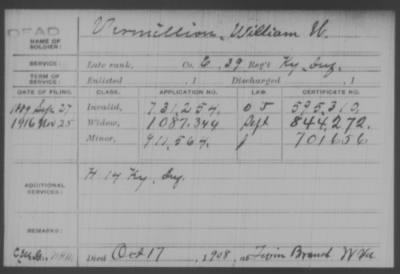 DEAD
NAME OF SOLDIER: Vermillion, William H.
SERVICE: Late rank, Co. E, 39 Reg't Ky. Inf.
TERM OF SERVICE: Enlisted , 1 Discharged , 1
DATE OF FILING. CLASS. APPLICATION NO. LAW. CERTIFICATE NO.
Sep. 27 Invalid, 731,254. 595,312.
1916 Nov. 25 Widow, 1087.344 Sept 844,272.
Minor, 911,564. 701656
ADDITIONAL SERVICES: H 14 Ky. Inf.
REMARKS:
Died Oct 17, 1908, at Twin Branch W Va